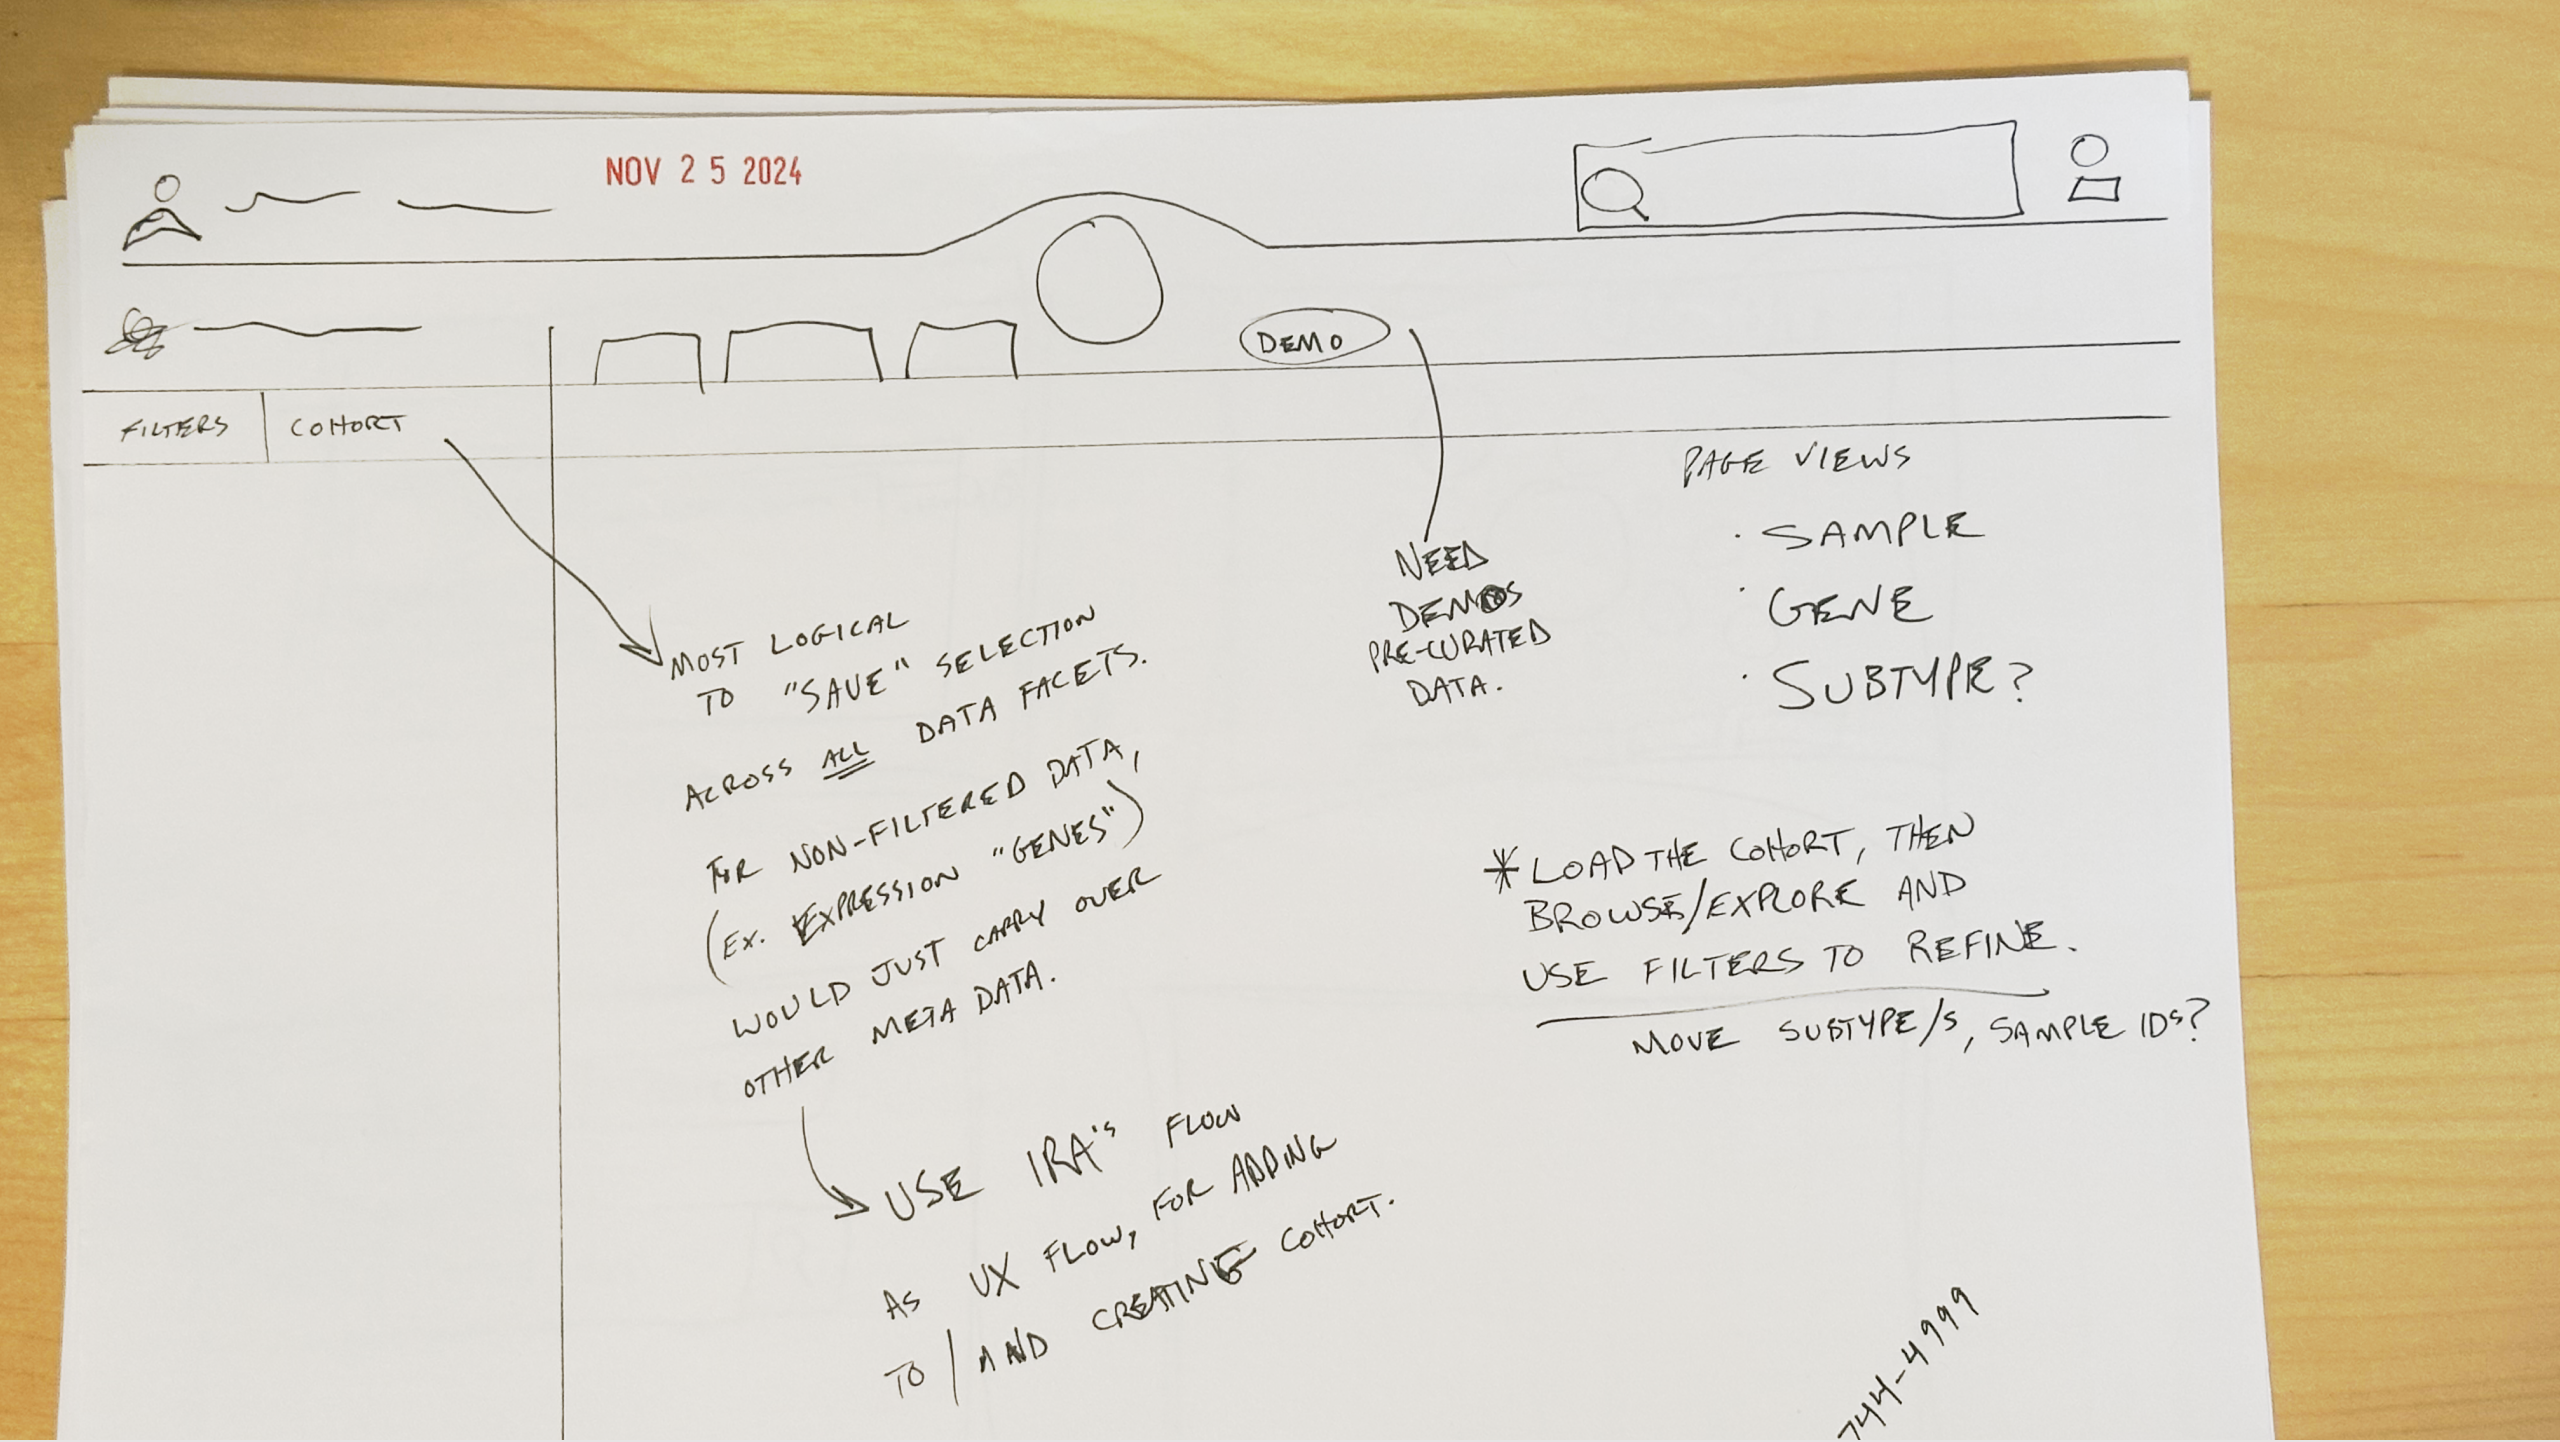 NOV 25 2024
DEMO
FILTERS
COHORT
MOST LOGICAL
TO "SAVE" SELECTION
ACROSS ALL DATA FACETS.
FOR NON-FILTERED DATA,
(EX. EXPRESSION "GENES")
WOULD JUST CARRY OVER
OTHER META DATA.
USE IRA'S FLOW
AS UX FLOW, FOR ADDING
TO/AND CREATING COHORT.
NEED
DEMOS
PRE-CURATED
DATA.
PAGE VIEWS
· SAMPLE
· GENE
· SUBTYPE?
*LOAD THE COHORT, THEN
BROWSE/EXPLORE AND
USE FILTERS TO REFINE.
MOVE SUBTYPE/S, SAMPLE IDS?
744-4999